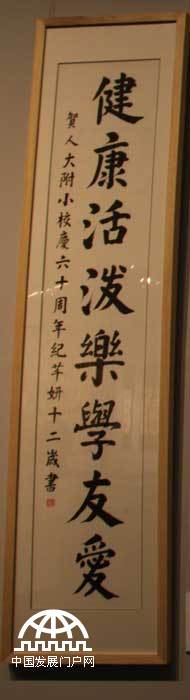 健康活泼樂學友愛
賀人大附小校慶六十周年紀芊妍十二歲書
中国发展门户网